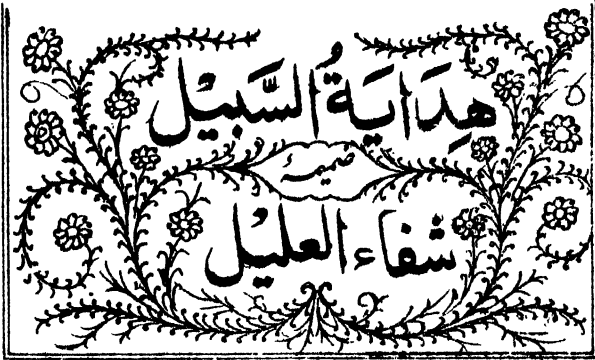 هِدَايَةُ السَّبِيْل
ضمیمۂ
شفاء العليْل